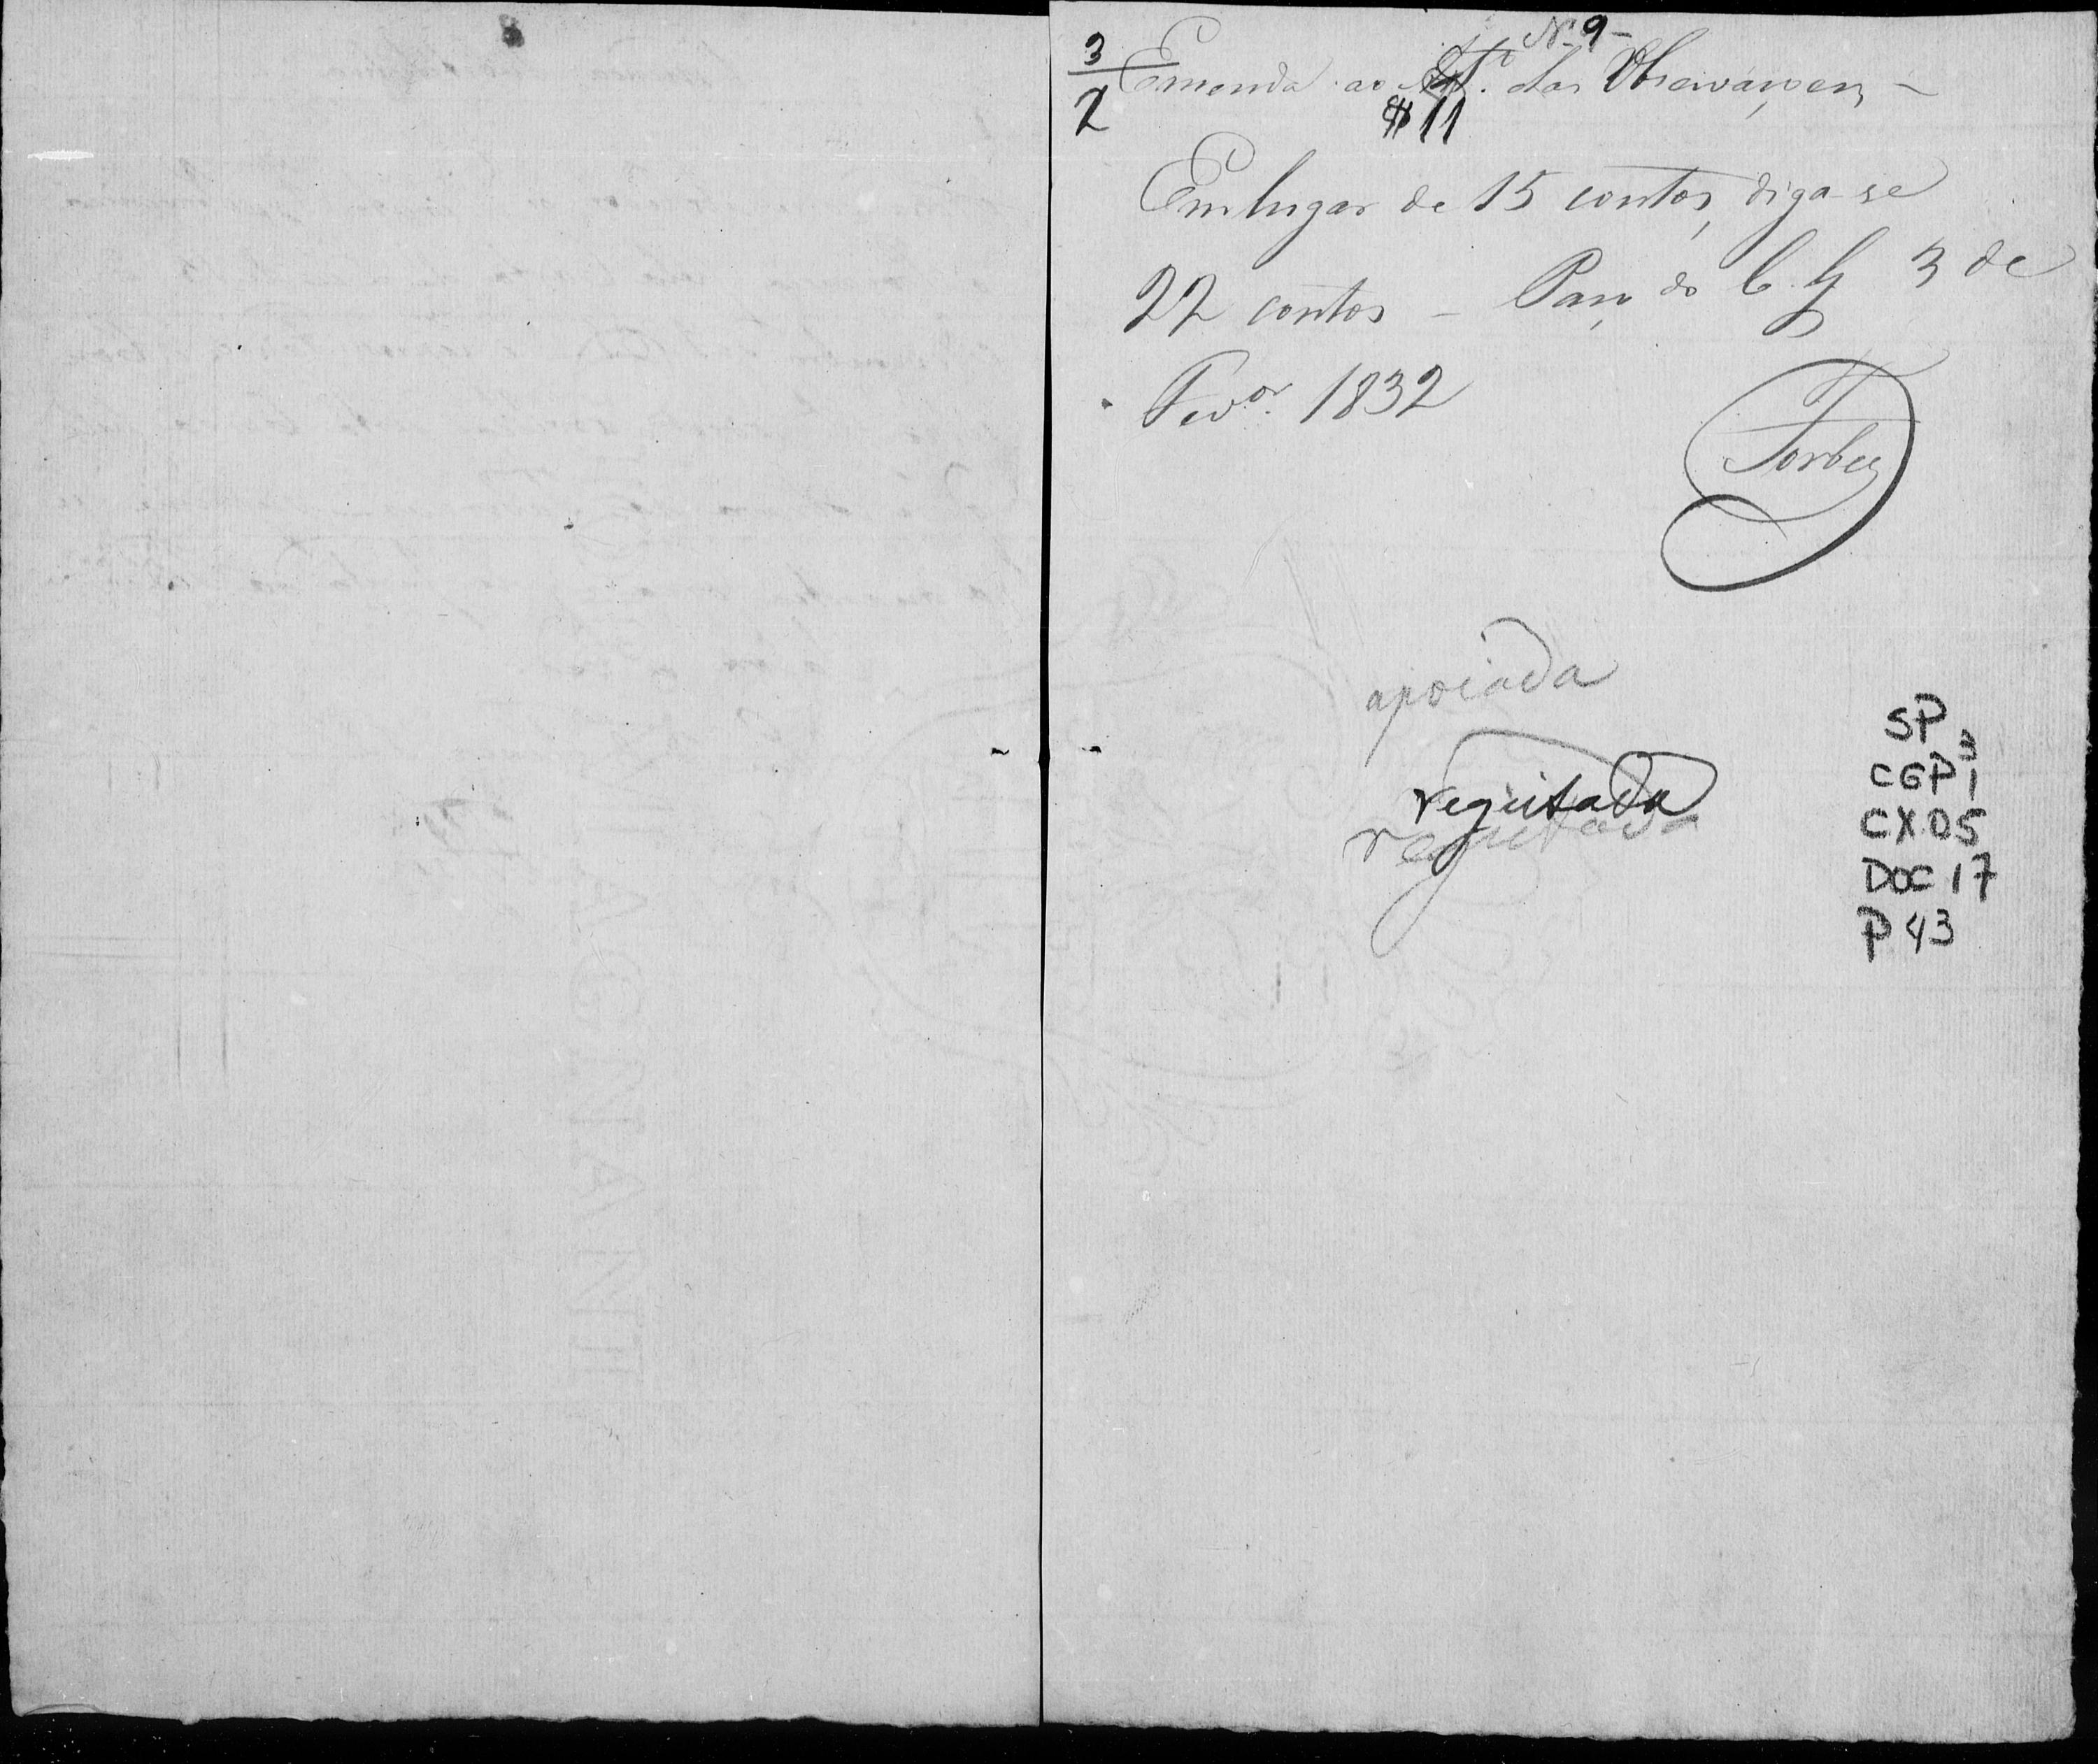 Nº 9 -
3/2
Emenda ao das Observaçoens -
§ 11
Em lugar de 15 contos, diga-se
22 contos - Paço do C. G 3 de
Fevor. 1832
apoiada
regeitada
regeitada
SP
CGP 1
3
CX 05
DOC 17
P 43